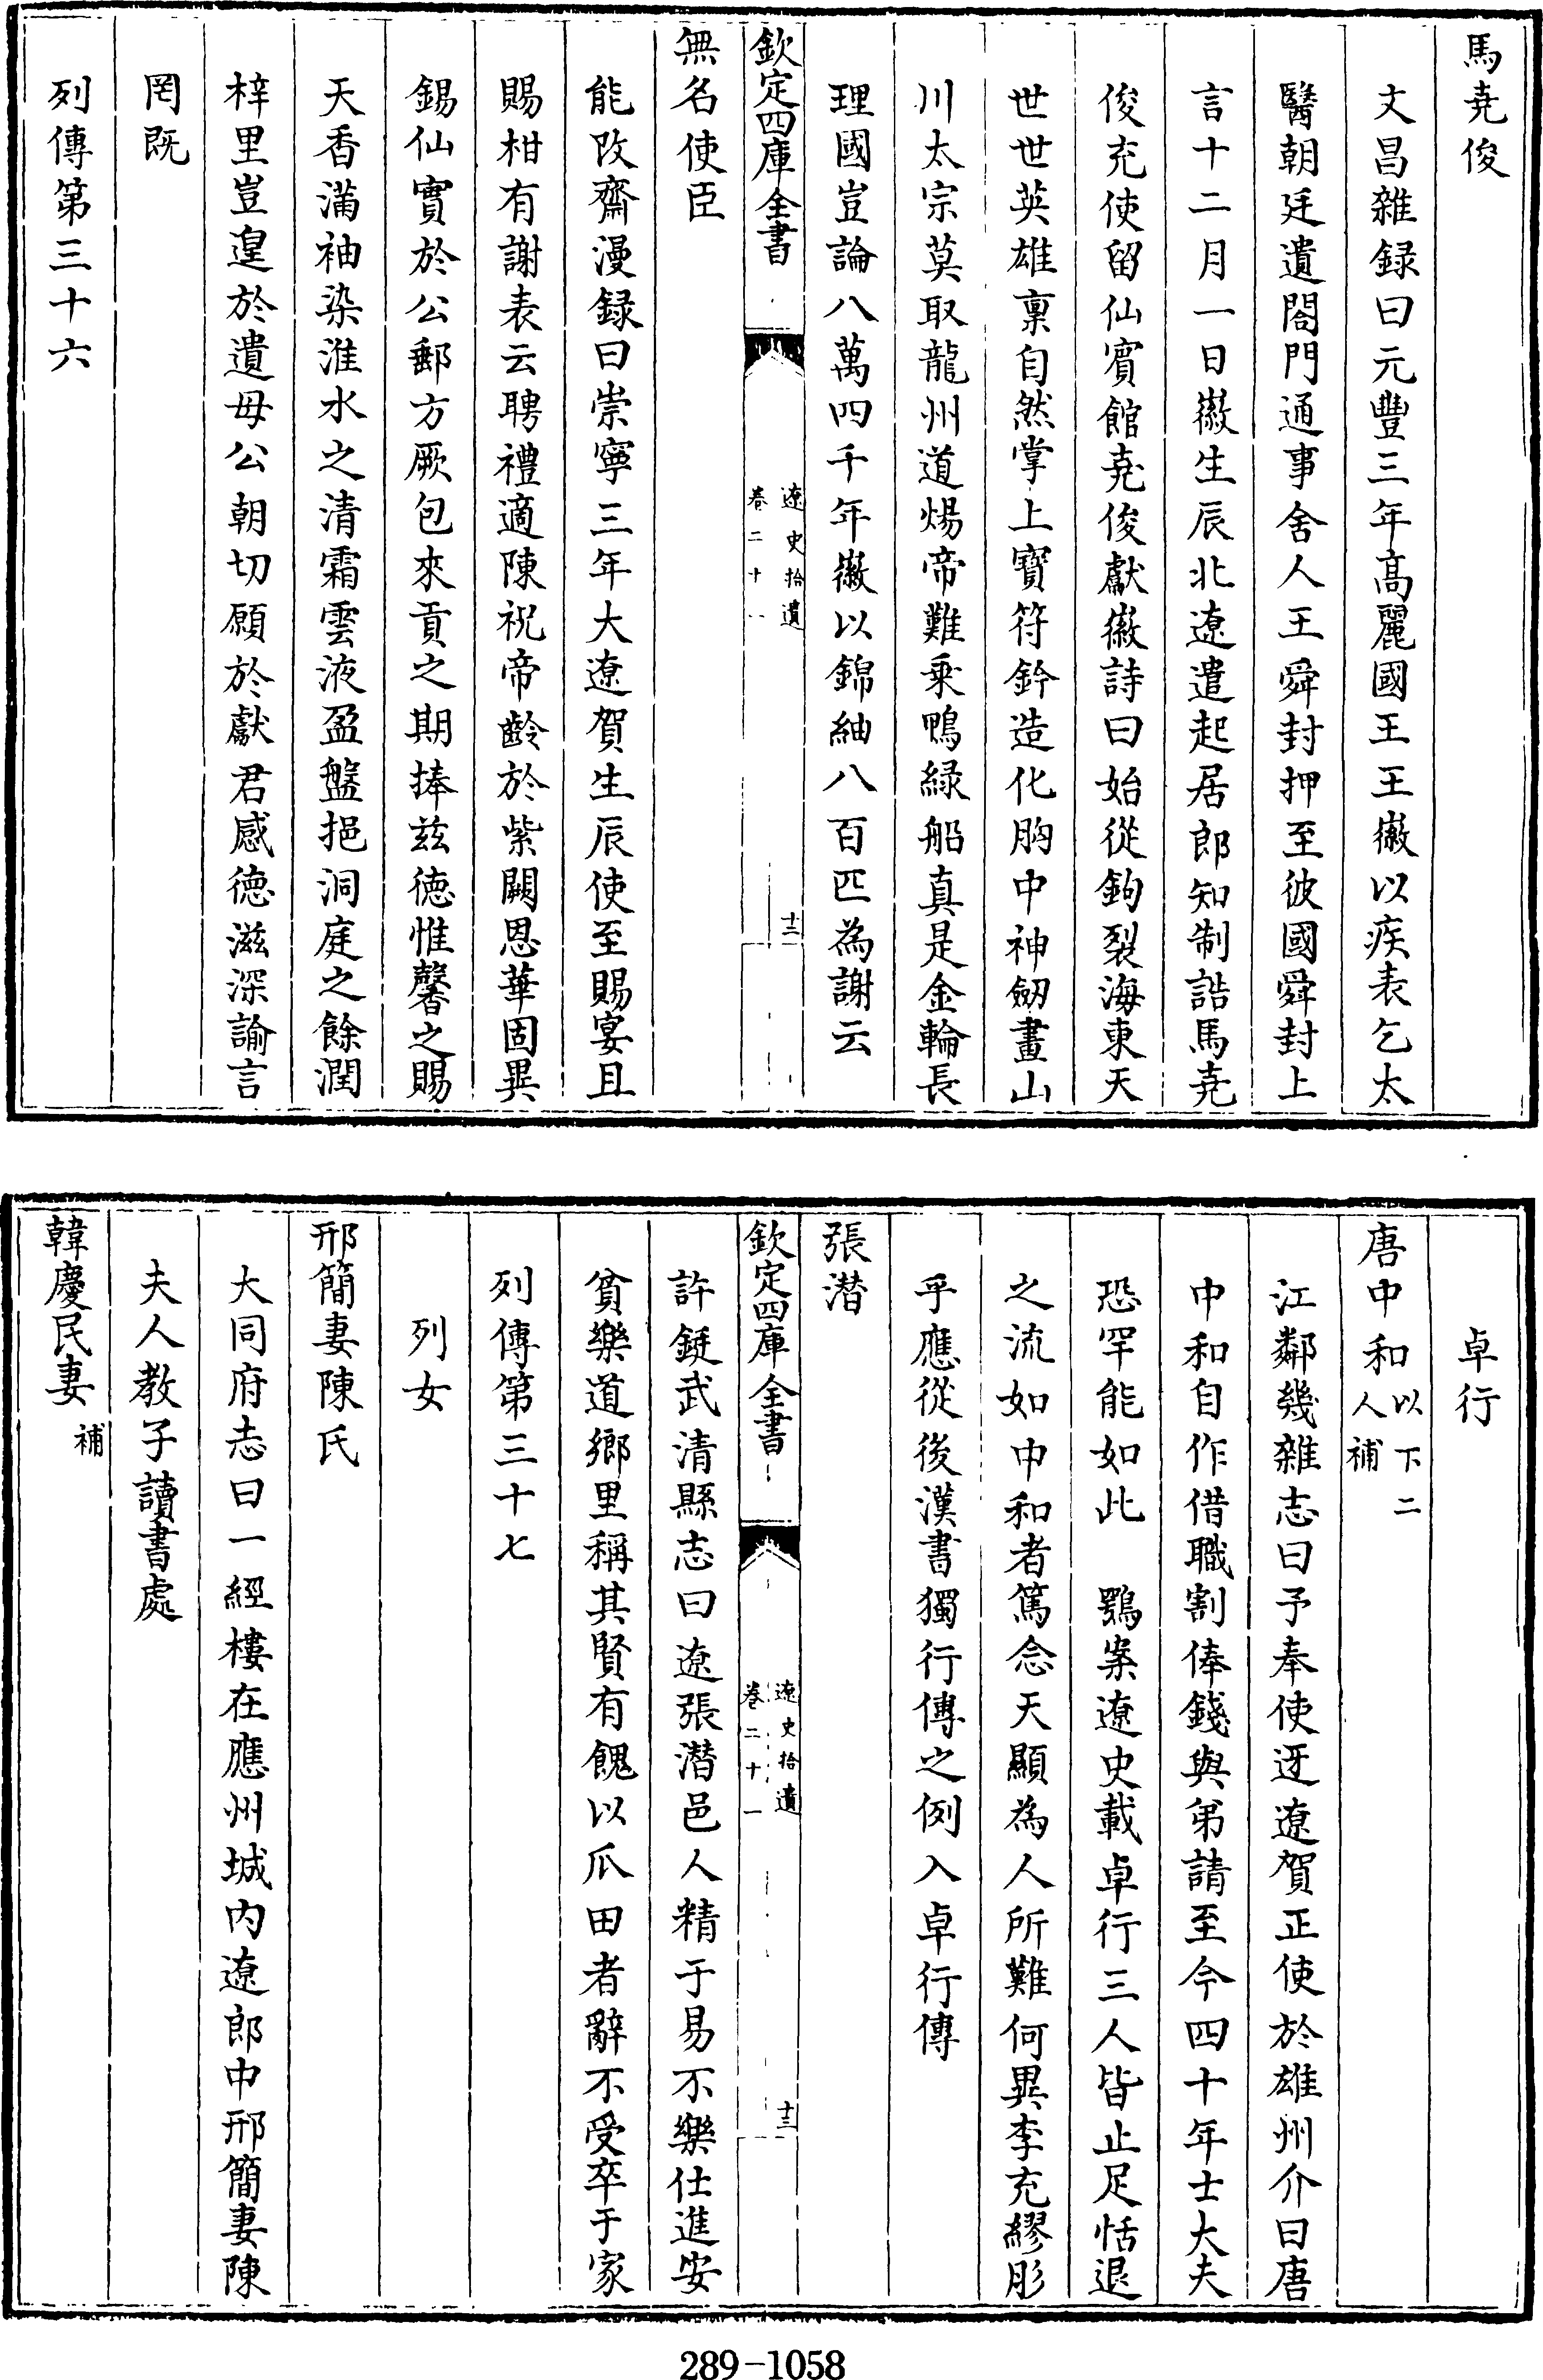 馬堯俊
文昌雜録曰元豐三年髙麗國王王徽以疾表乞太
醫朝廷遣閤門通事舍人王舜封押至彼國舜封上
言十二月一日徽生辰北遼遣起居郎知制誥馬堯
俊充使留仙賓館堯俊獻徽詩曰始從鉤裂海東天
世世英雄稟自然掌上寶符鈐造化胷中神劒畫山
川太宗莫取龍州道煬帝難乗鴨緑船真是金輪長
理國豈論八萬四千年徽以錦紬八百匹為謝云
欽定四庫全書
遼史拾遺
卷二十一
十二
無名使臣
能改齋漫録曰崇寧三年大遼賀生辰使至賜宴且
賜柑有謝表云聘禮適陳祝帝齡於紫闕恩華固異
錫仙實於公郵方厥包來貢之期捧兹徳惟馨之賜
天香滿袖染淮水之清霜雲液盈盤挹洞庭之餘潤
梓里豈遑於遺母公朝切願於獻君感徳滋深諭言
罔既
列傳第三十六
卓行
唐中和以下二人補
江鄰幾雜志曰予奉使迓遼賀正使於雄州介曰唐
中和自作借職割俸錢與弟請至今四十年士大夫
恐罕能如此 鶚案遼史載卓行三人皆止足恬退
之流如中和者篤念天顯為人所難何異李充繆肜
乎應從後漢書獨行傳之例入卓行傳
張潛
欽定四庫全書
遼史拾遺
卷二十一
十三
許鋌武清縣志曰遼張潛邑人精于易不樂仕進安
貧樂道鄉里稱其賢有餽以爪田者辭不受卒于家
列傳第三十七
列女
邢簡妻陳氏
大同府志曰一經樓在應州城内遼郎中邢簡妻陳
夫人教子讀書處
韓慶民妻補
289-1058